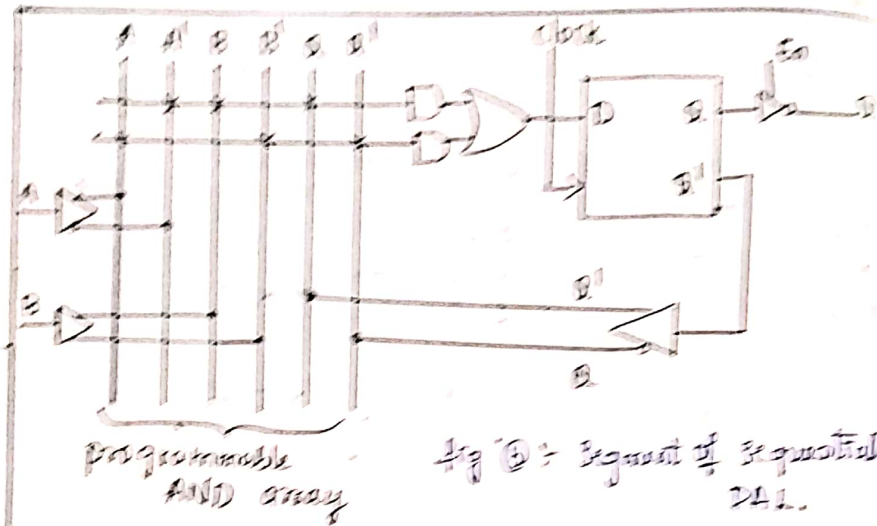 A A' B B' Q Q'
Clock
En
D Q
Q'
A
B
Q'
Q
programmable
AND array
fig : Segment of Sequential
PAL.